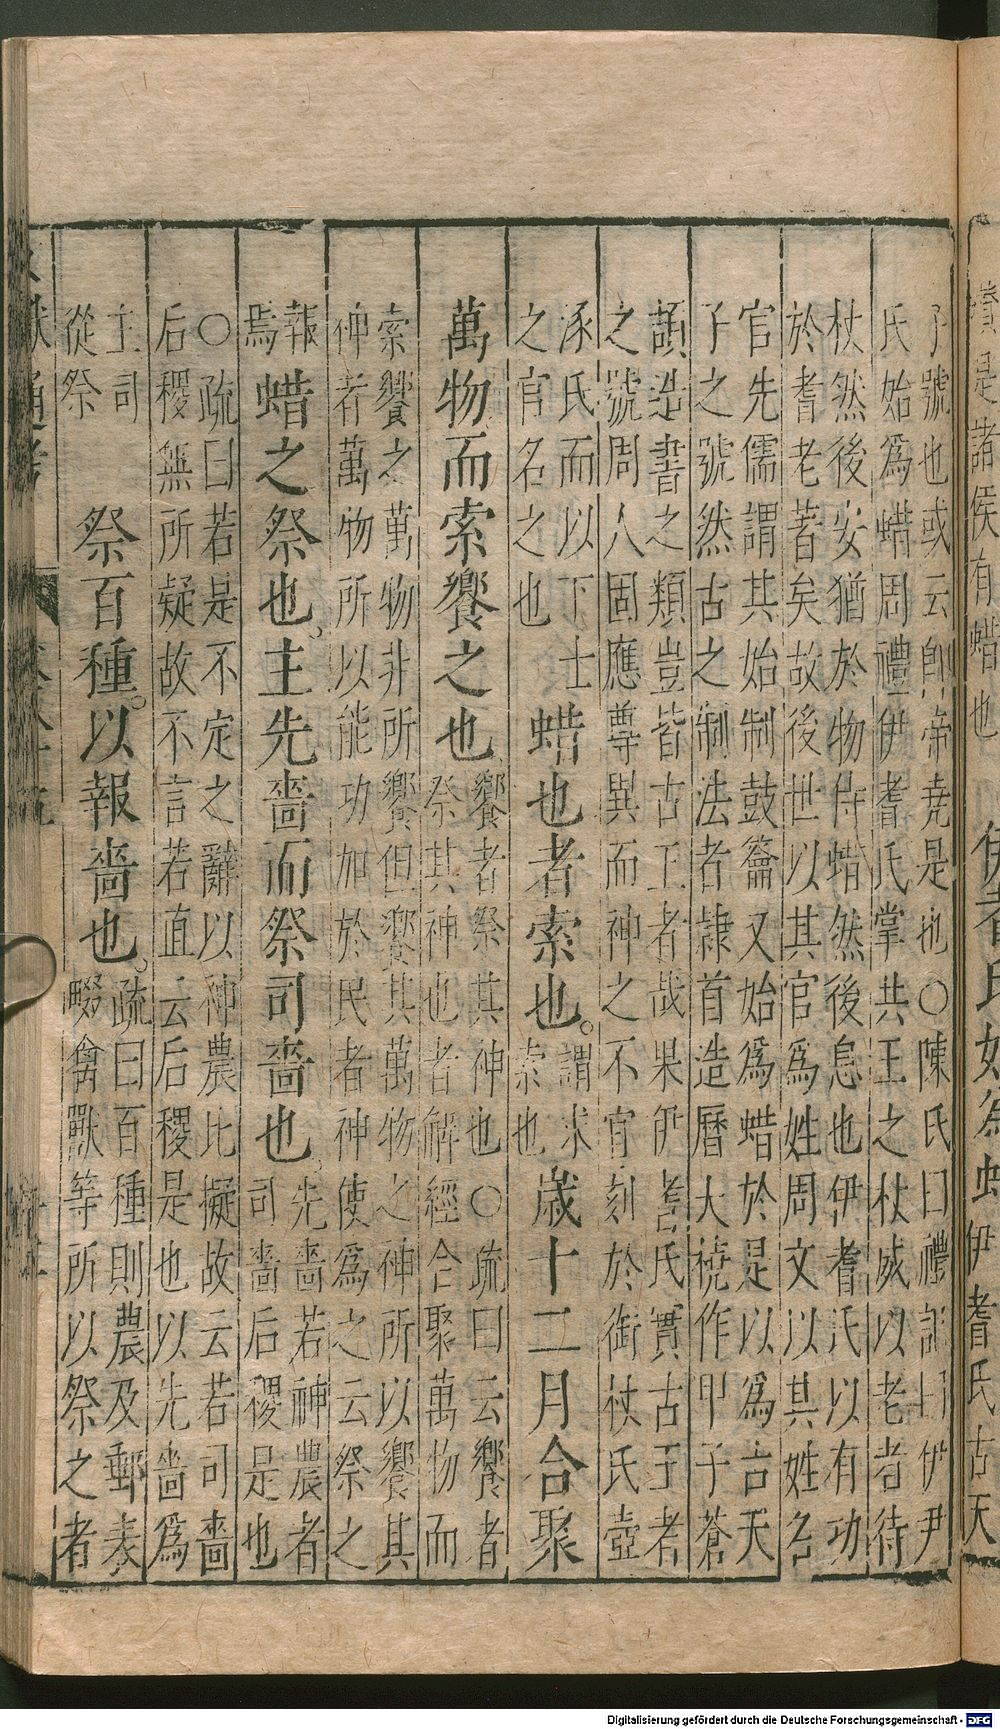 伊耆氏始爲蜡伊耆氏古天
子號也或云卽帝堯是也○陳氏曰禮記曰伊尹
氏始爲蜡周禮伊耆氏掌共王之杖咸以老者待
杖然後安猶於物待蜡然後息也伊耆氏以有功
於耆老著矣故後世以其官爲姓周文以其姓名
官先儒謂其始制鼓籥又始爲蜡於是以爲古天
子之號然古之制法者隷首造曆大橈作甲子蒼
頡造書之類豈皆古王者哉果伊耆氏實古王者
之號周人固應尊異而神之不官刻於銜杖氏壺
涿氏而以下士
之官名之也
蜡也者索也。
謂求
索也
歲十二月合聚
萬物而索饗之也
饗者祭其神也○疏曰云饗者
祭其神也者解經合聚萬物而
索饗之萬物非所饗但饗其萬物之神所以饗其
神者萬物所以能功加於民者神使爲之云祭之
報
焉
蜡之祭也。主先嗇而祭司嗇也。
先嗇若神農者
司嗇后稷是也
○疏曰若是不定之辭以神農比擬故云若司嗇
后稷無所疑故不言若直云后稷是也以先嗇爲
主司
從祭
祭百種。以報嗇也。
疏曰百種則農及郵表
畷禽獸等所以祭之者
Digitalisierung gefördert durch die Deutsche Forschungsgemeinschaft - DFG